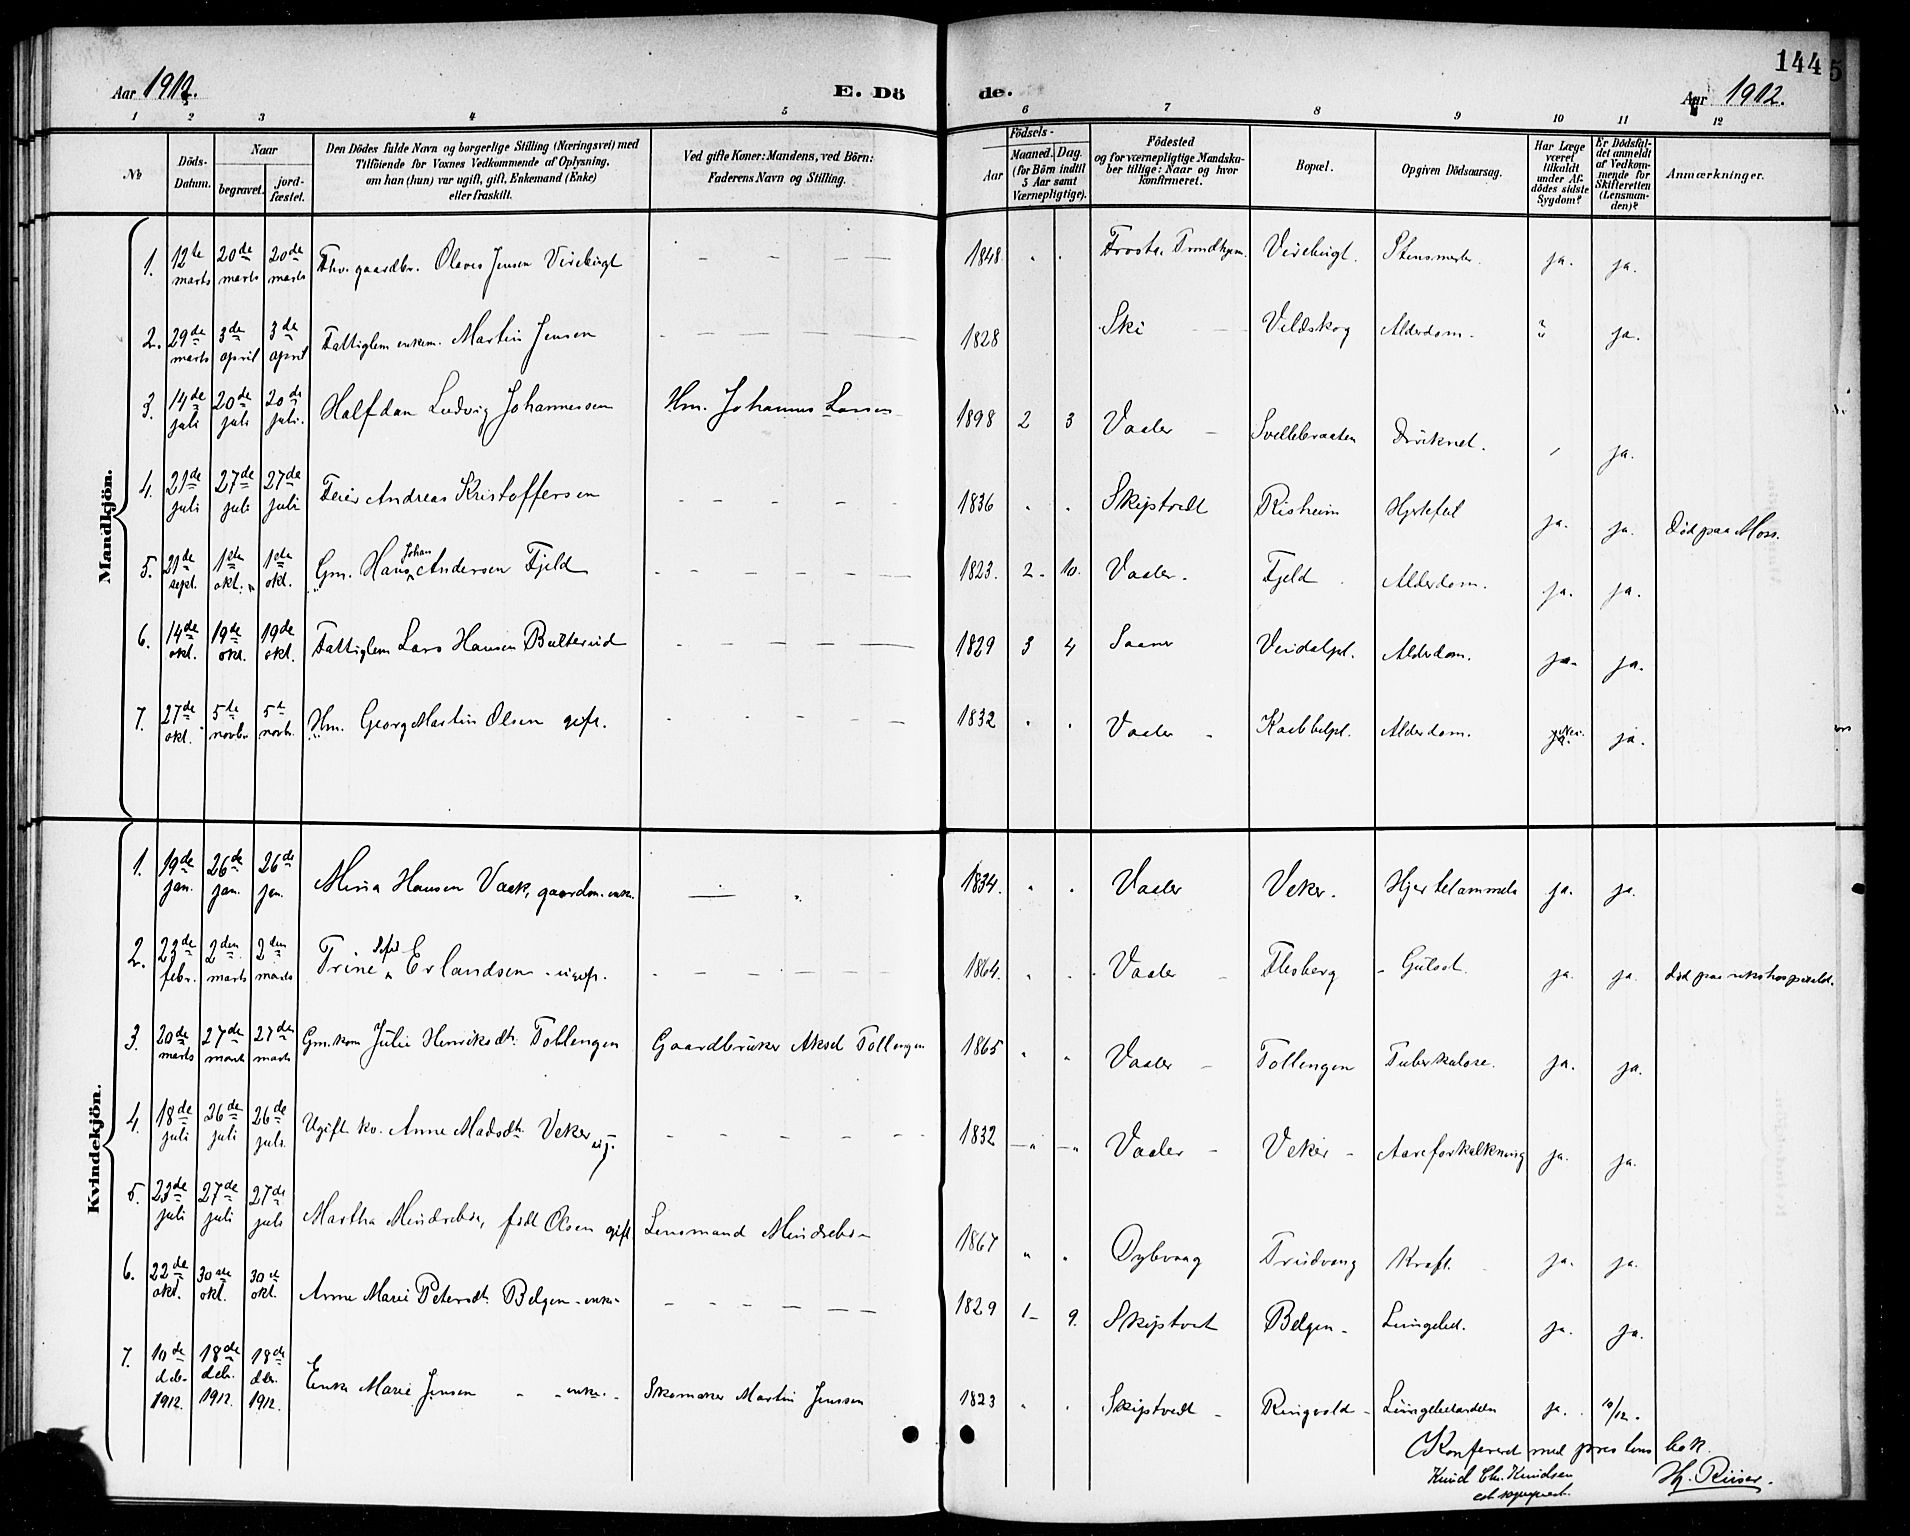 144
5
Aar 1912.
E. Dö
de.
Aar 1912.
1 2 3 4 5
6 7 8 9 10 11 12
No
Döds-
Datum.
Naar
begravet.
jord-
fæstet.
Den Dödes fulde Navn og borgerlige Stilling (Næringsvei) med
Tilföiende for Voxnes Vedkommende af Oplysning,
om han (hun) var ugift, gift, Enkemand (Enke)
eller fraskilt.
Ved gifte Koner: Mandens, ved Börn:
Faderens Navn og Stilling.
Födsels-
Aar
Maaned. Dag.
(for Börn indtil
5 Aar samt
Værnepligtige).
Födested
og for værnepligtige Mandska-
ber tillige: Naar og hvor
konfirmeret.
Bopæl.
Opgiven Dödsaarsag.
Har Læge
været
tilkaldt
under Af-
dödes sidste
Sygdom?
Er Dödsfal-
det anmeldt
af Vedkom-
mende for
Skifteretten
(Lensman-
den)?
Anmærkninger.
Mandkjön.
1. 12te marts 20de marts 20de marts Fhv. gaardbr. Olaves Jensen Virebugt – – – – 1848 " " Frosta, Trondhjem. Virebugt. ja. ja.
2. 29de marts 3de april 3de april Fattiglem enkem. Martin Jensen – – – – 1828 Ski – Vildskog Alderdom. ? ja.
3. 14de juli 20de juli 20de juli. Halfdan Ludvig Johannessen Hm. Johannes Larsen 1898 2 3 Vaaler – Svellebraaten Druknet. ja.
4. 21de juli 27de juli 27de juli Feier Andreas Kristoffersen – – – – 1836 " " Skiptvedt Risheim Hjertefeil ja. ja. Död paa Moss.
5. 21de sept. 1ste okt. 1ste okt. Gm. Hans Johan Andersen Fjeld – – – – 1823. 2. 10. Vaaler. Fjeld Alderdom. ja. ja.
6. 14de okt. 19de okt. 19de okt. Fattiglem Lars Hansen Bulterud – – – – 1829 3 4 Saaner Vindalpl. Alderdom. ja. ja.
7. 27de okt. 5te novbr. 5te novbr. Hm. Georg Martin Olsen gift. – – – – 1832 " " Vaaler – Kabbelpl. Alderdom. Nei. ja.
Kvindekjön.
1. 19de jan. 26de jan. 26de jan. Mina Hansen Vaak, gaardm. enke. — " 1834. " " Vaaler Veker. Hjertelammelse ja. ja.
2. 23de febr. 2den marts 2den marts Trine Erlandsen – ugift. – – – – 1864. " " Vaaler – Flesberg – Gulsot. ja. ja. död paa rikshospitalet.
3. 20de marts 27de marts 27de marts Gm.kom Julie Henriksdtr. Tollengen Gaardbruker Aksel Tollengen 1865 " " Vaaler – Tollengen Tuberkulose. ja. ja.
4. 18de juli 26de juli 26de juli. Ugift kv. Anne Madsdtr. Veker ug. – – – – 1832 –"– –"– Vaaler – Veker – Aareforkalkning ja. ja.
5. 23de juli 27de juli 27de juli Martha Mindrebö, født Olsen gift Lensmand Mindrebö – 1867 " " Dybvaag Trudvang Kræft. ja. ja.
6. 22de okt. 30te okt. 30te okt. Anne Marie Petersdtr. Belgen – enke – – – – – 1829 1 – 9. Skiptvet Belgen – Lungebet. ja. ja.
7. 10de deb. 1912. 18de deb. 1912. 18de deb. 1912. Enke Marie Jensen – – enke. – Skomaker Martin Jenssen 1823 " " Skiptvedt – Ringvold – Lungebetændelse ja. 10/12.
Konfereret med prestens bok.
Knud Chr. Knudsen
est sogneprest.
Hj. Riiser.